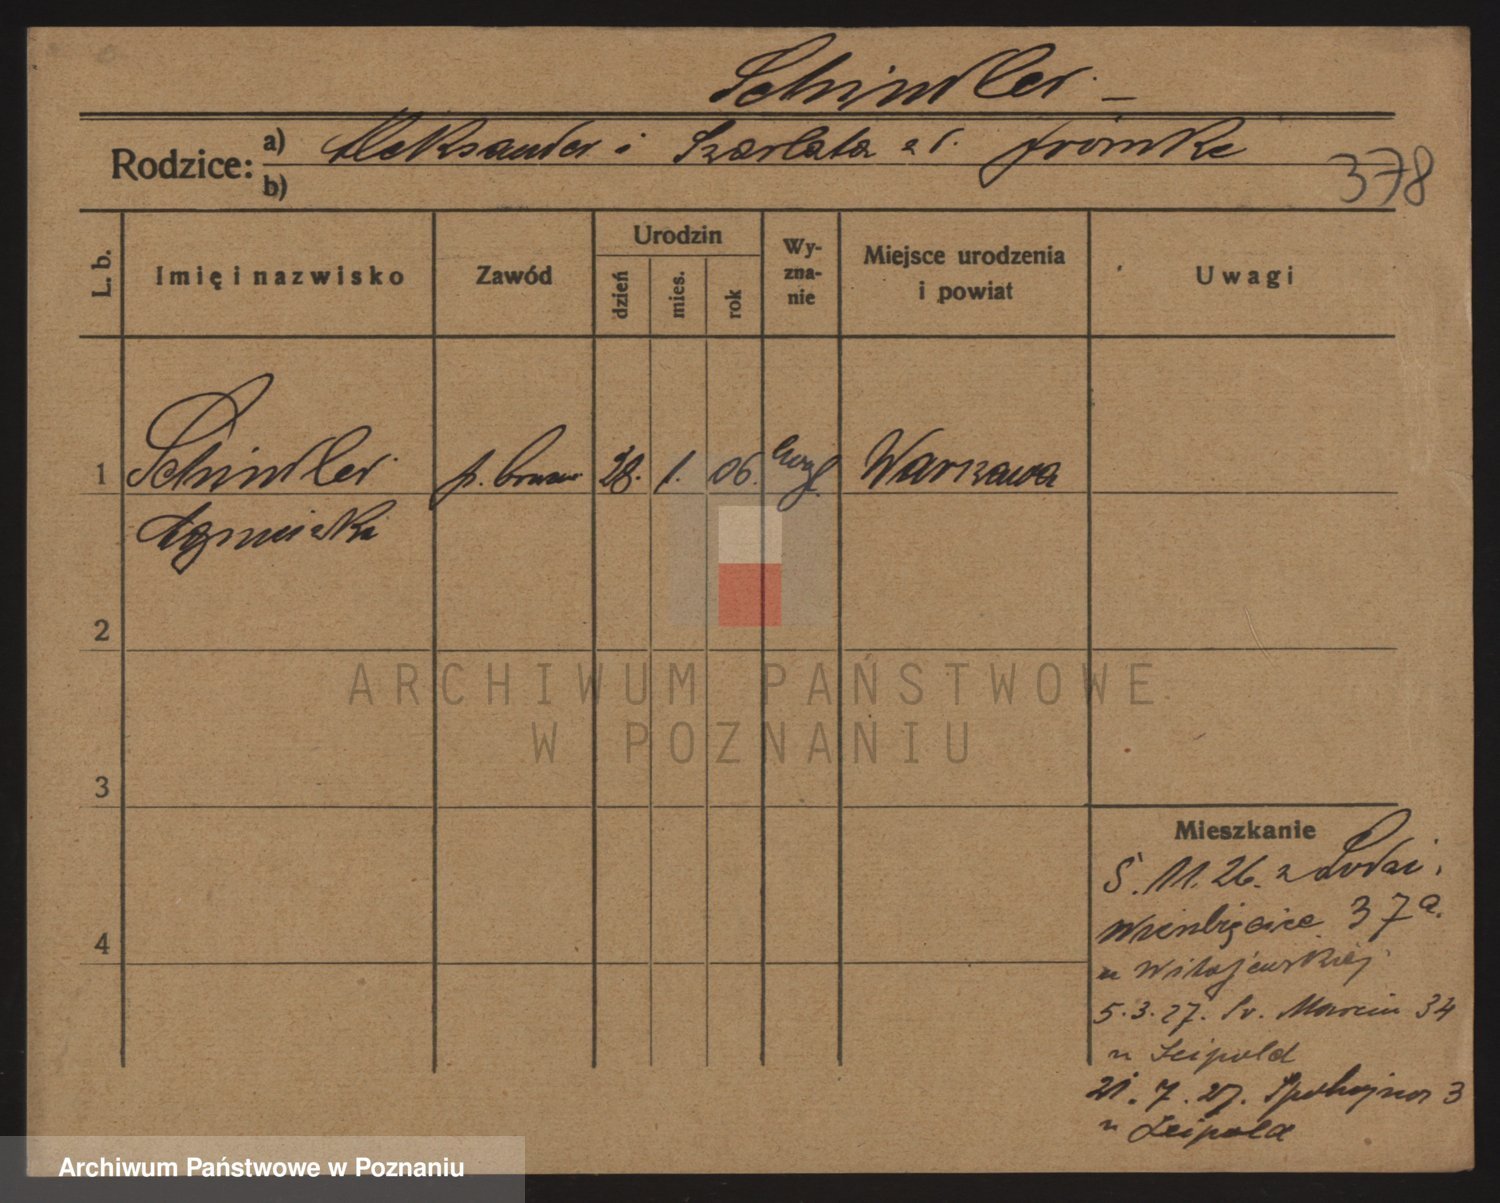 Schindler. —
Rodzice: a) Aleksander i Szarlata z d. Frömke
b)
378
L. b.
Imię i nazwisko
Zawód
Urodzin
dzień
mies.
rok
Wy-
zna-
nie
Miejsce urodzenia
i powiat
Uwagi
1 Schindler 28. 1. 06. Ewgl. Warszawa
Agnieszka
2
3
4
Mieszkanie
5. 11. 26. z Łodzi.
Wierzbięcice 37a.
u
5. 3. 27. Św. Marcin 34
u Leipold
21. 7. 27. Spokojna 3
u Leipold
ARCHIWUM PAŃSTWOWE
W POZNANIU
Archiwum Państwowe w Poznaniu